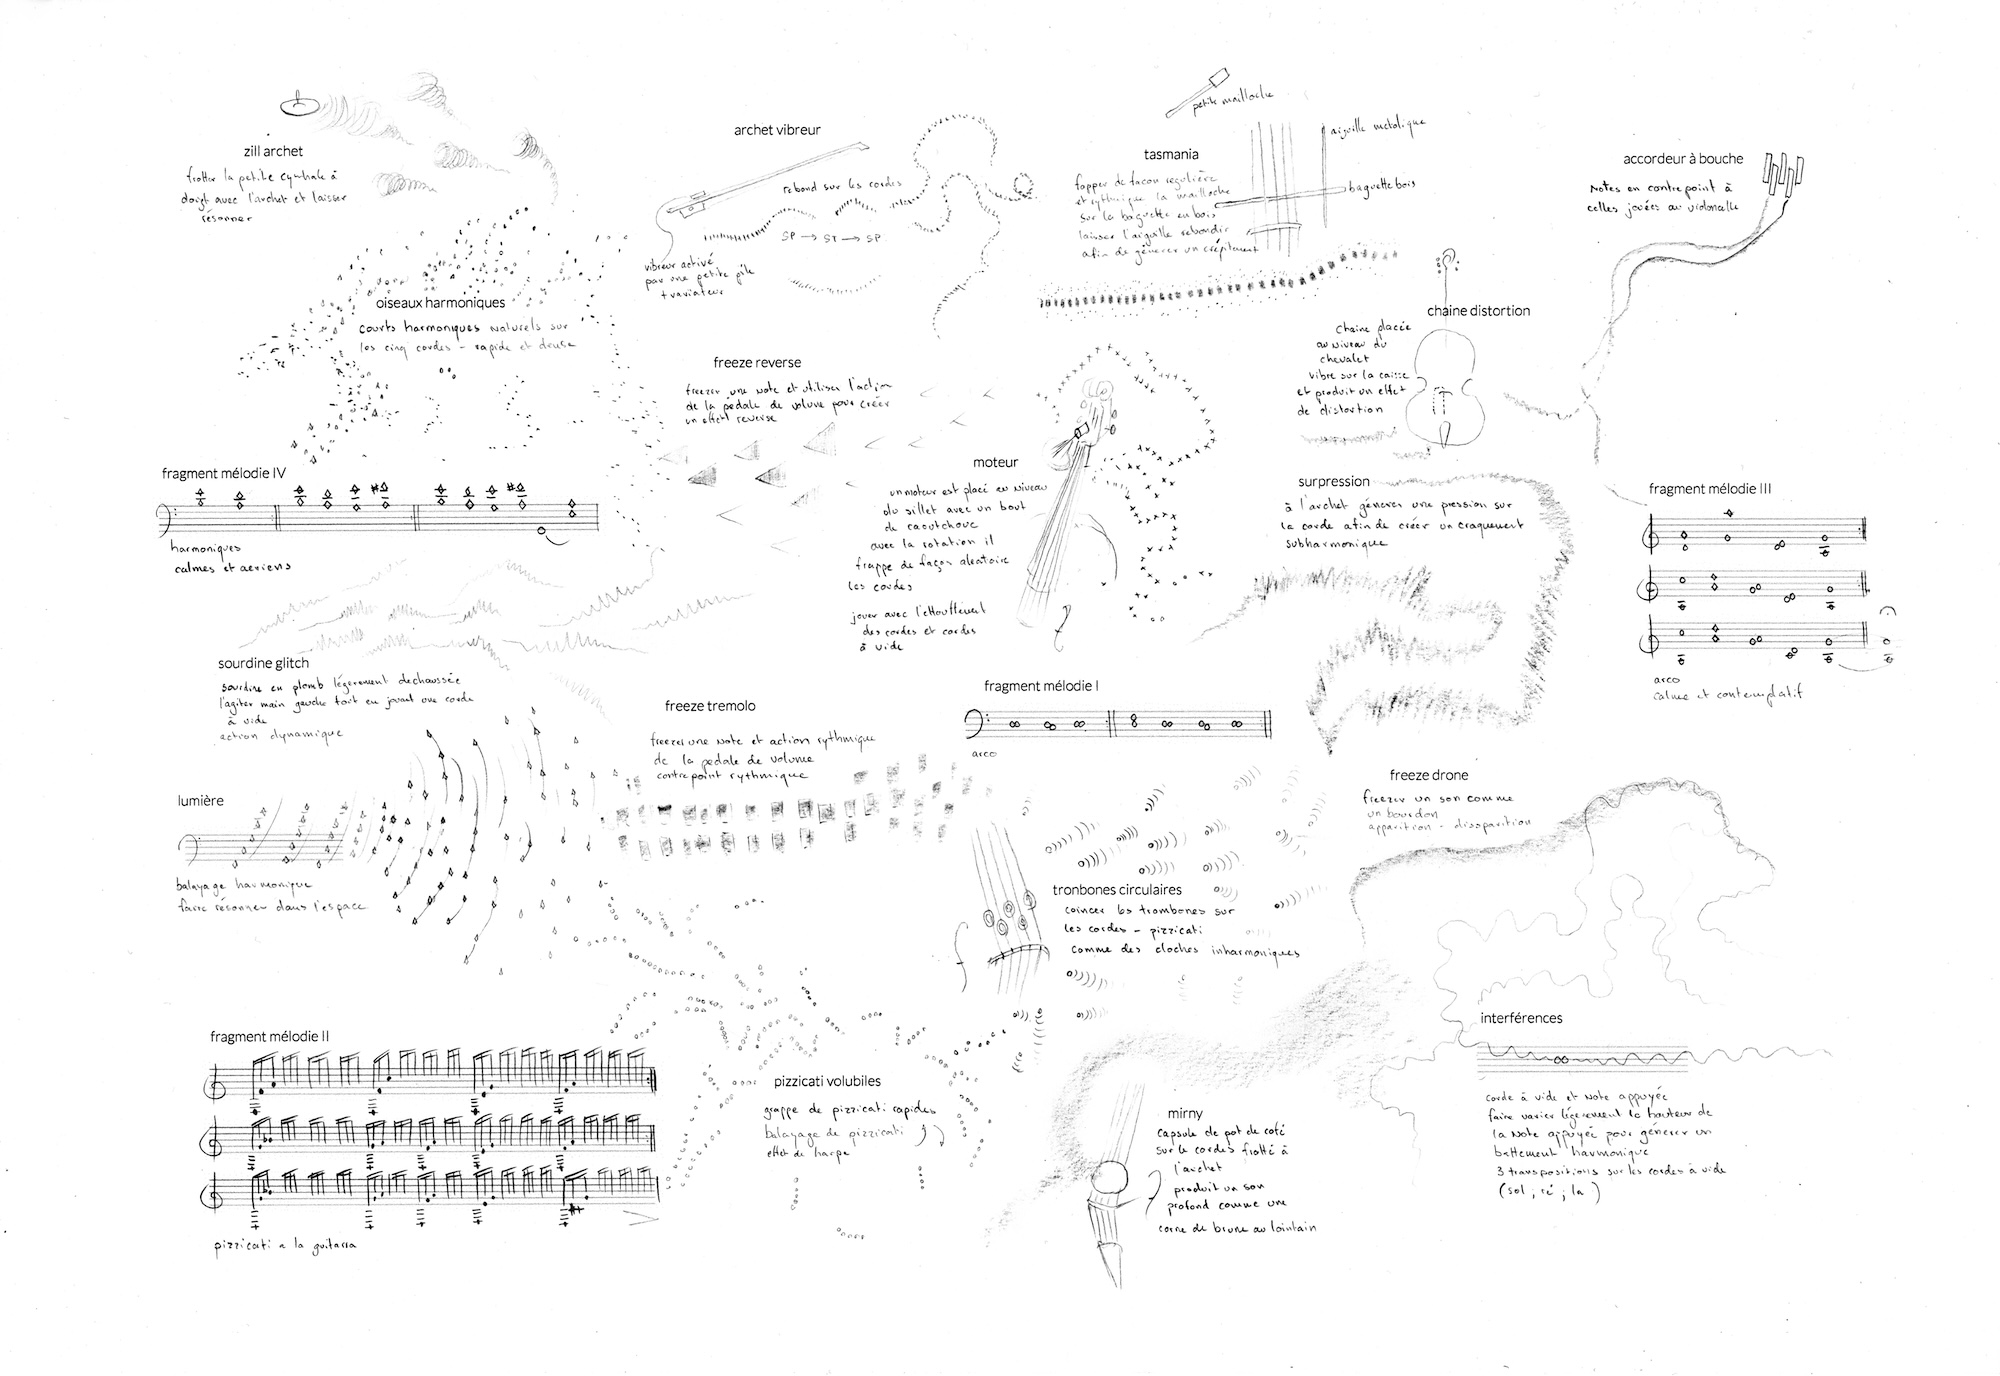 zill archet
frotter la petite cymbale à
doigt avec l'archet et laisser
résonner
archet vibreur
rebond sur les cordes
SP → ST → SP
vibreur activé
par une petite pile
+ variateur
petite mailloche
aiguille métalique
tasmania
baguette bois
frapper de facon regulière
et rythmique la mailloche
sur la baguette en bois
laisser l'aiguille rebondir
afin de génerer un crépitement
accordeur à bouche
Notes en contrepoint à
celles jouées au violoncelle
oiseaux harmoniques
courts harmoniques naturels sur
les cinq cordes - rapide et dense
chaine distortion
chaine placée
au niveau du
chevalet
vibre sur la caisse
et produit un effet
de distortion
freeze reverse
freezer une note et utiliser l'action
de la pédale de volume pour créer
un effet reverse
fragment mélodie IV
harmoniques
calmes et aeriens
moteur
un moteur est placé au niveau
du sillet avec un bout
de caoutchouc
avec la rotation il
frappe de façon aleatoire
les cordes
jouer avec l'étouffement
des cordes et cordes
à vide
surpression
à l'archet génerer une pression sur
la corde afin de créer un craquement
subharmonique
fragment mélodie III
arco
calme et contemplatif
sourdine glitch
sourdine en plomb légèrement dechaussée
l'agiter main gauche tout en jouant une corde
à vide
action dynamique
freeze tremolo
freezer une note et action rythmique
de la pedale de volume
contrepoint rythmique
fragment mélodie I
arco
freeze drone
freezer un son comme
un bourdon
apparition - disparition
lumière
balayage harmonique
faire résonner dans l'espace
tronbones circulaires
coincer les trombones sur
les cordes - pizzicati
comme des cloches inharmoniques
interférences
corde à vide et note appuyée
faire varier légèrement la hauteur de
la note appuyée pour générer un
battement harmonique
3 transpositions sur les cordes à vide
(sol ; ré ; la)
fragment mélodie II
pizzicati a la guitarra
pizzicati volubiles
grappe de pizzicati rapides
balayage de pizzicati
effet de harpe
mirny
capsule de pot de café
sur le cordes frotté à
l'archet
produit un son
profond comme une
corne de brume au lointain